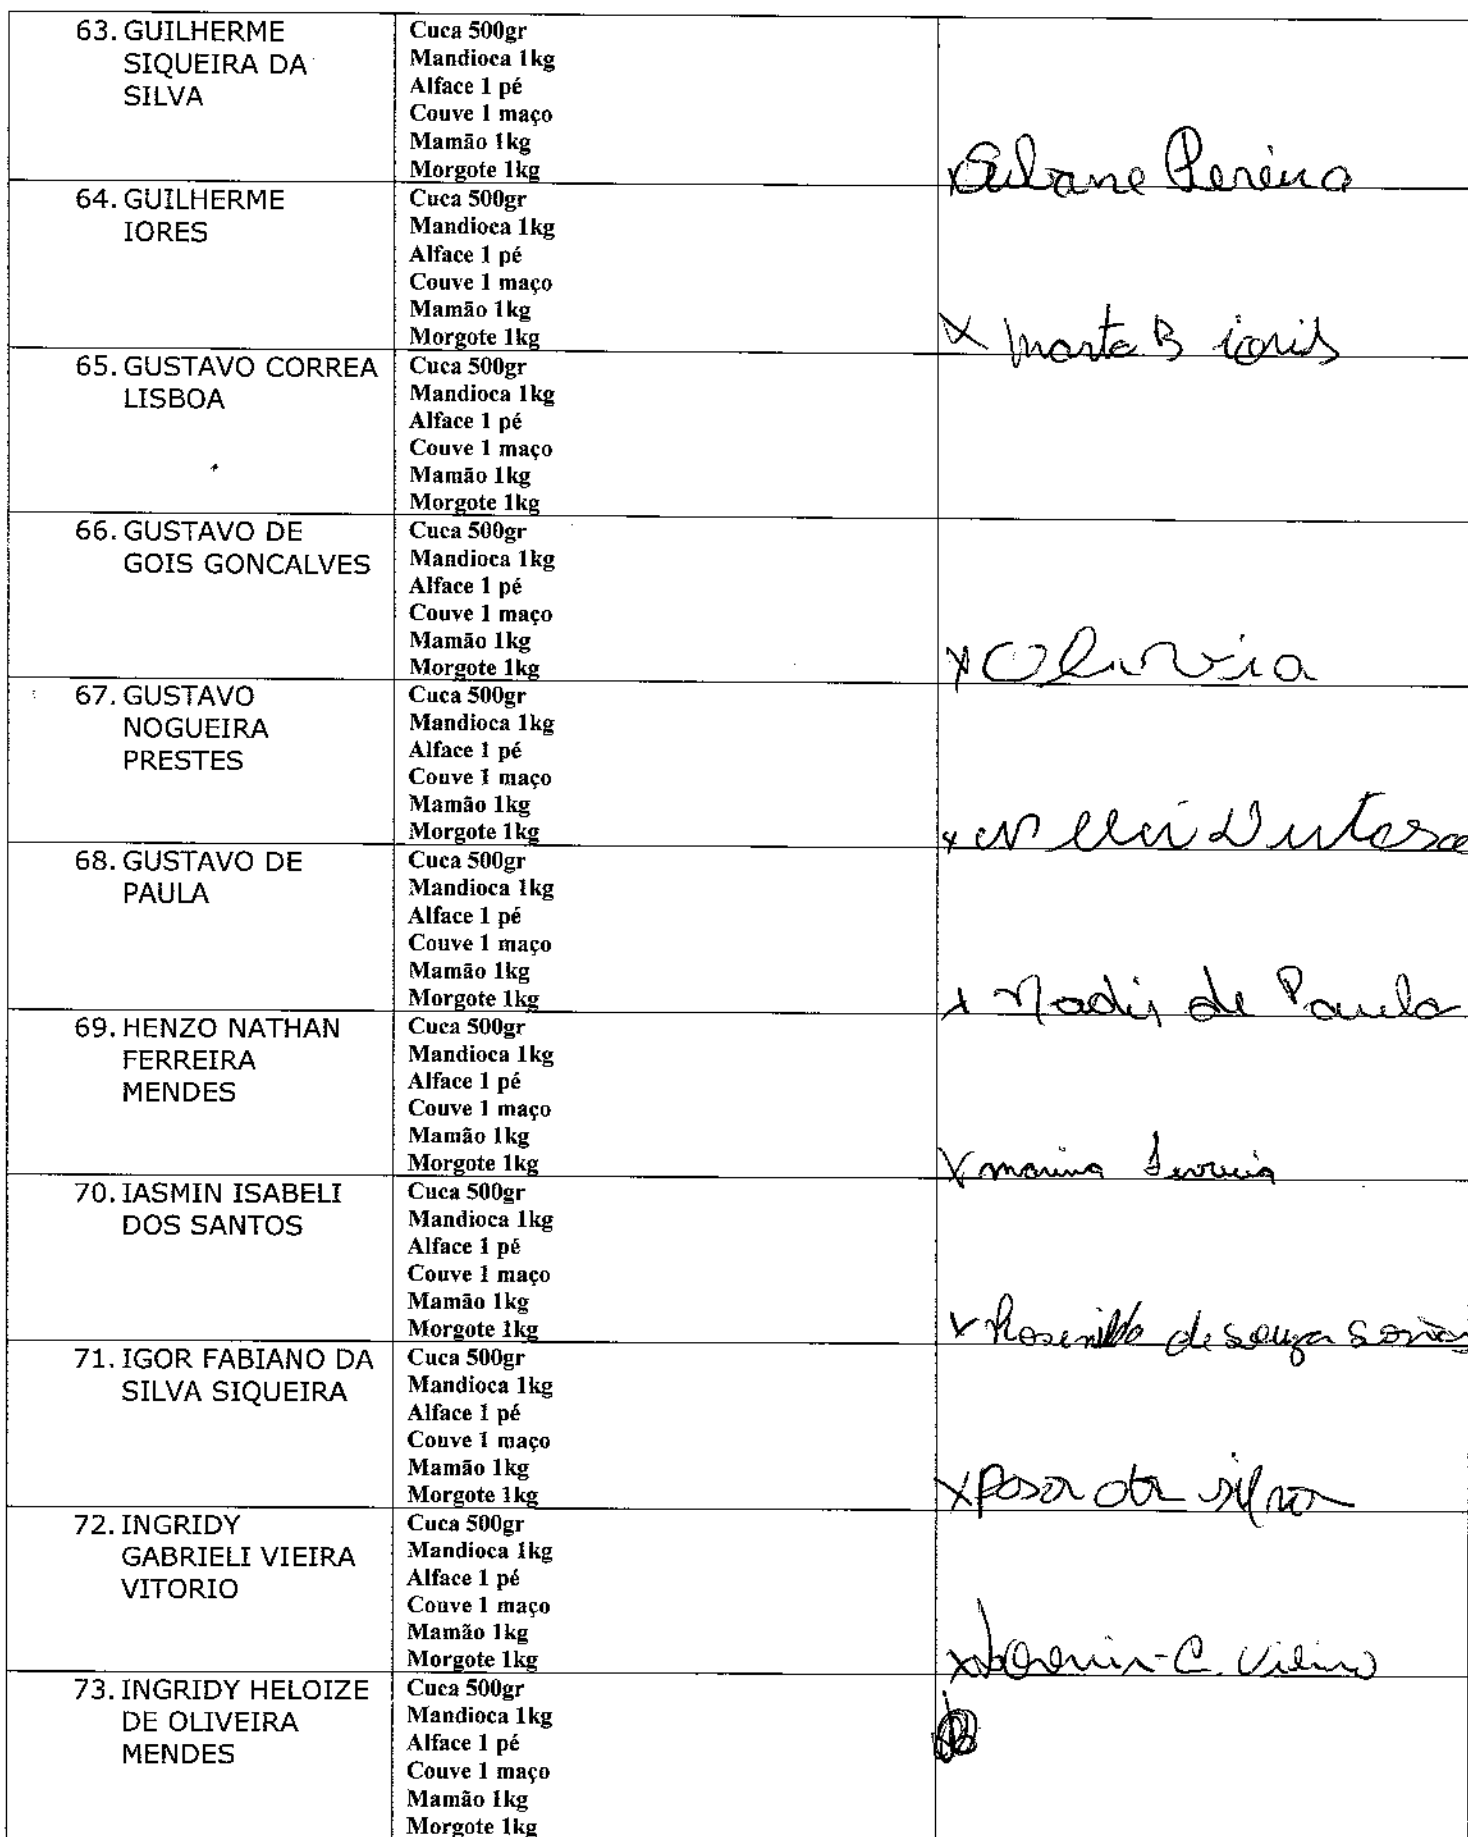 63. GUILHERME
SIQUEIRA DA
SILVA
Cuca 500gr
Mandioca 1kg
Alface 1 pé
Couve 1 maço
Mamão 1kg
Morgote 1kg
Pereira
64. GUILHERME
IORES
Cuca 500gr
Mandioca 1kg
Alface 1 pé
Couve 1 maço
Mamão 1kg
Morgote 1kg
X Marta B ioris
65. GUSTAVO CORREA
LISBOA
Cuca 500gr
Mandioca 1kg
Alface 1 pé
Couve 1 maço
Mamão 1kg
Morgote 1kg
66. GUSTAVO DE
GOIS GONCALVES
Cuca 500gr
Mandioca 1kg
Alface 1 pé
Couve 1 maço
Mamão 1kg
Morgote 1kg
X Olivia
67. GUSTAVO
NOGUEIRA
PRESTES
Cuca 500gr
Mandioca 1kg
Alface 1 pé
Couve 1 maço
Mamão 1kg
Morgote 1kg
x
68. GUSTAVO DE
PAULA
Cuca 500gr
Mandioca 1kg
Alface 1 pé
Couve 1 maço
Mamão 1kg
Morgote 1kg
x Nadir de Paula
69. HENZO NATHAN
FERREIRA
MENDES
Cuca 500gr
Mandioca 1kg
Alface 1 pé
Couve 1 maço
Mamão 1kg
Morgote 1kg
X marina Ferreira
70. IASMIN ISABELI
DOS SANTOS
Cuca 500gr
Mandioca 1kg
Alface 1 pé
Couve 1 maço
Mamão 1kg
Morgote 1kg
de souza
71. IGOR FABIANO DA
SILVA SIQUEIRA
Cuca 500gr
Mandioca 1kg
Alface 1 pé
Couve 1 maço
Mamão 1kg
Morgote 1kg
X Rosa da silva
72. INGRIDY
GABRIELI VIEIRA
VITORIO
Cuca 500gr
Mandioca 1kg
Alface 1 pé
Couve 1 maço
Mamão 1kg
Morgote 1kg
C. Vieira
73. INGRIDY HELOIZE
DE OLIVEIRA
MENDES
Cuca 500gr
Mandioca 1kg
Alface 1 pé
Couve 1 maço
Mamão 1kg
Morgote 1kg